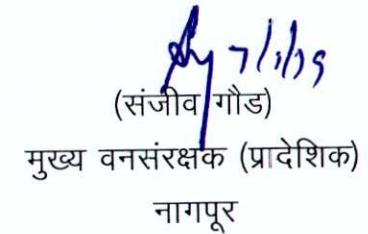 (संजीव गौड)
मुख्य वनसंरक्षक (प्रादेशिक)
नागपूर